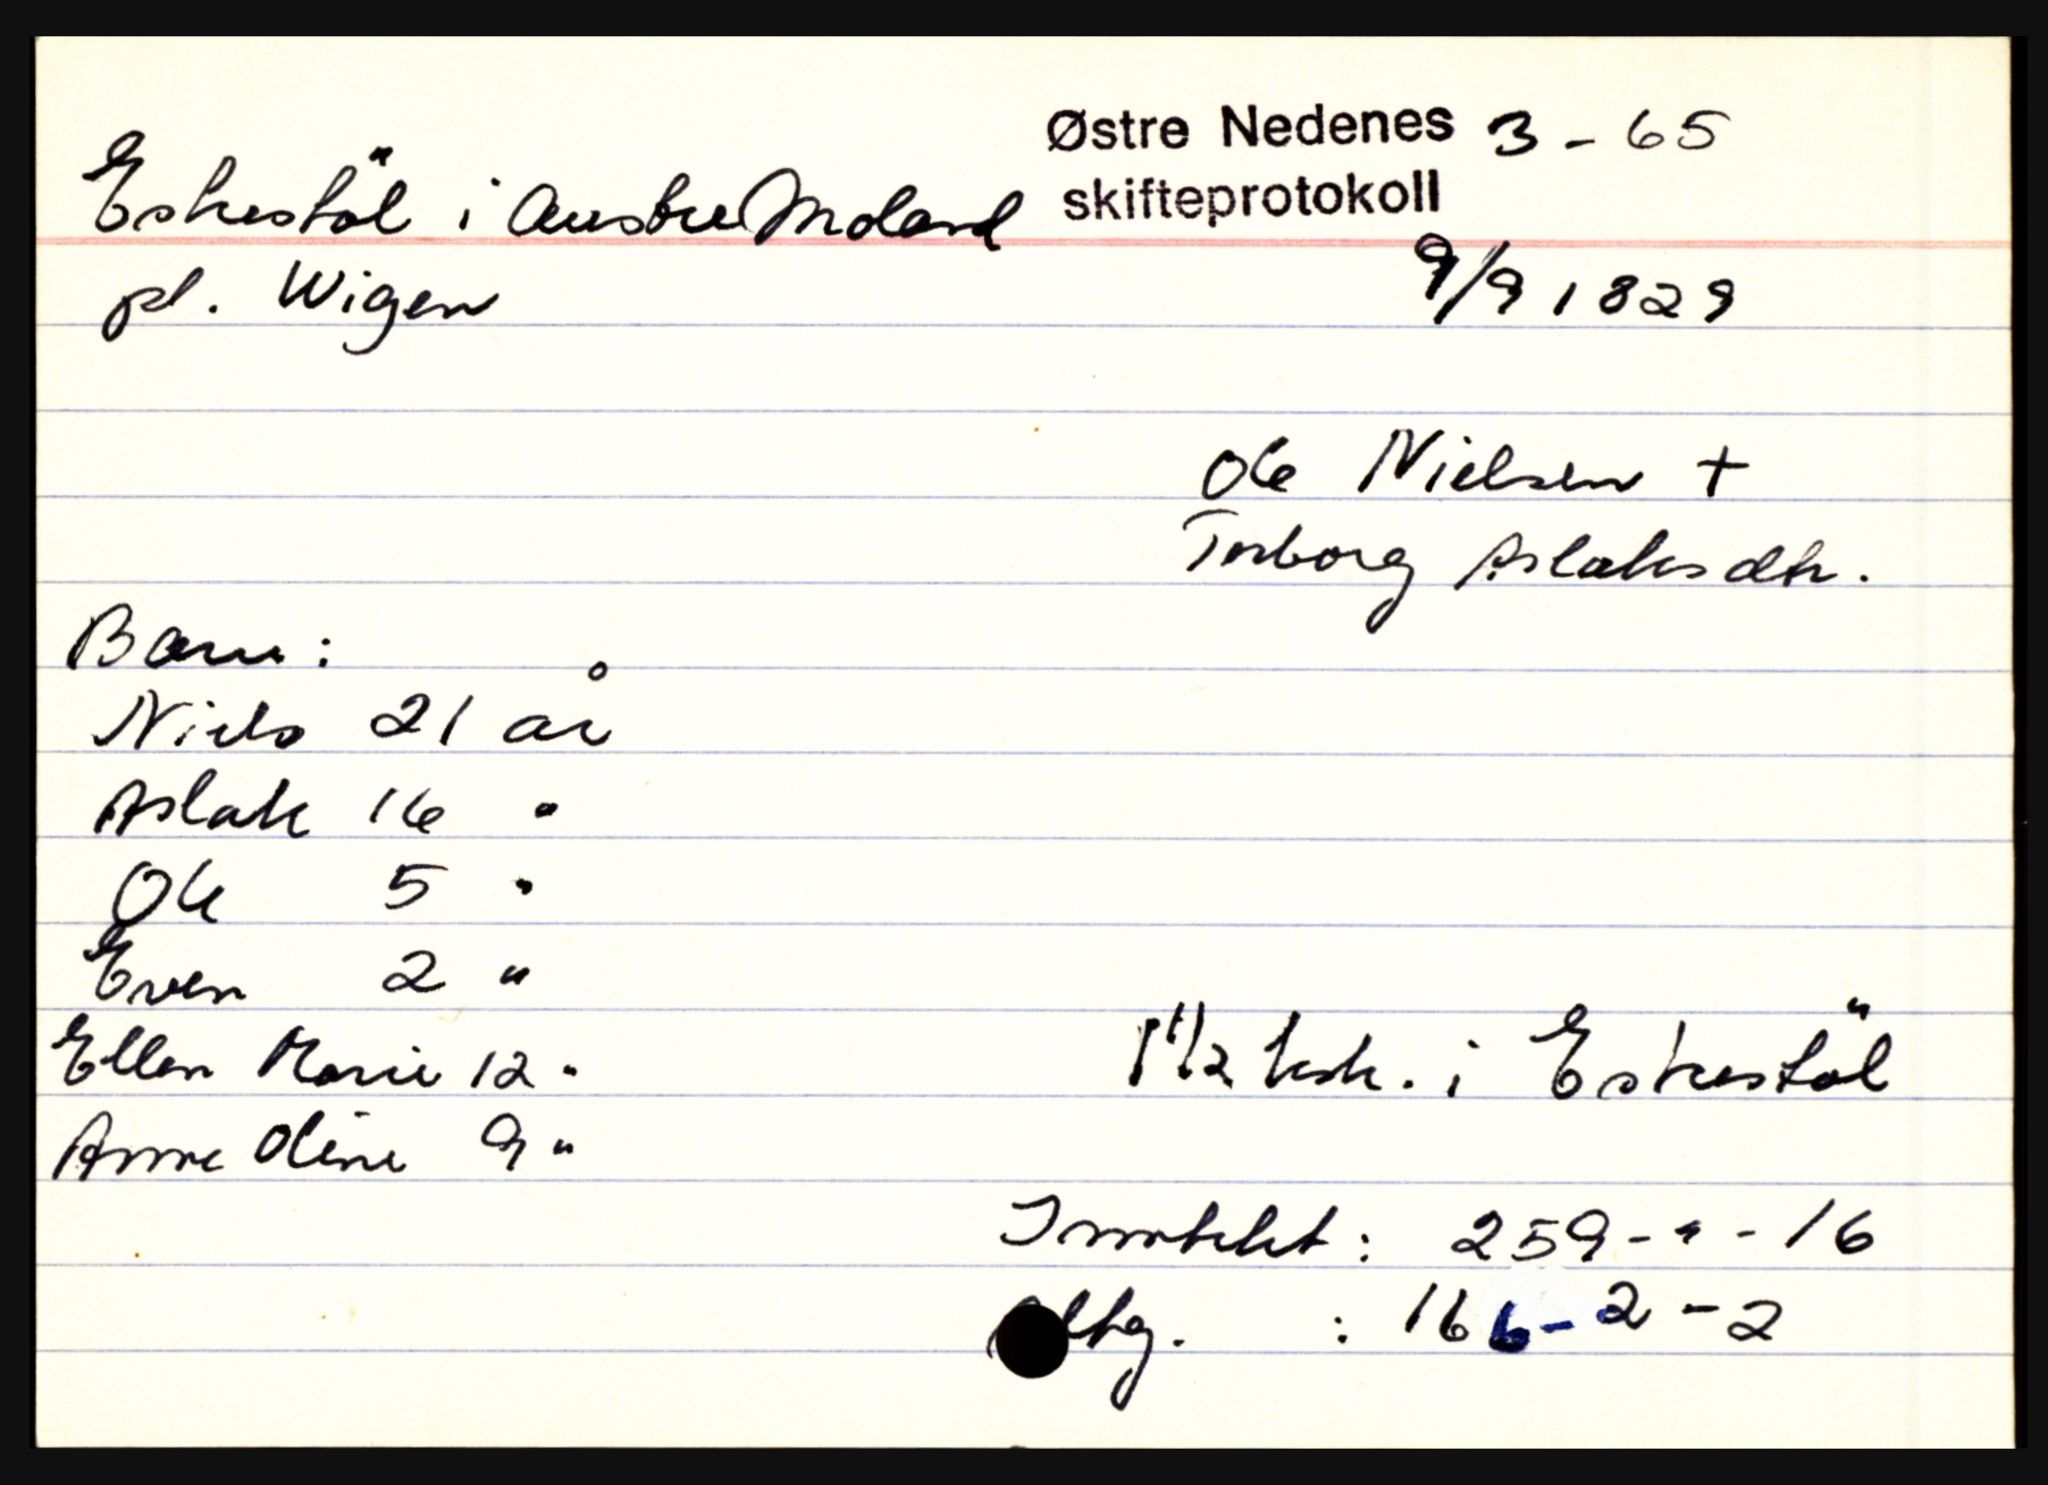 Østre Nedenes 3 - 65
skifteprotokoll
Eskestöl i Austre Moland
pl. Wigen
9/9 1829
Ole Nielsen +
Torborg Aslaksdtr.
Barn:
Niels 21 år
Aslak 16 "
Ole 5 "
Even 2 "
Ellen Marie 12 "
Anne Oline 9 "
i Eskestöl
Inntekt: 259 - " - 16
: 166 - 2 - 2